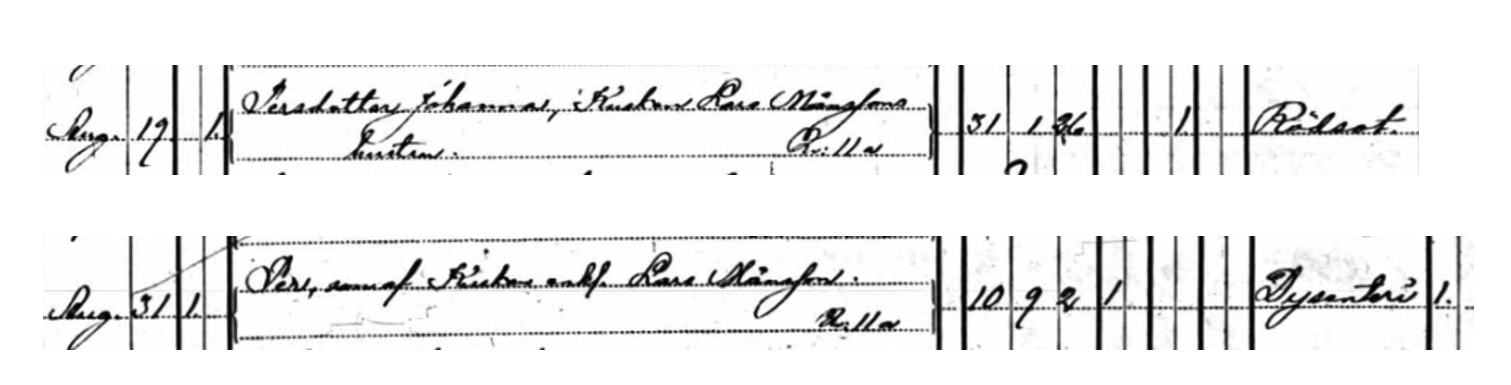 Persdotter Johanna, Kusken Lars Månssons
Aug. 19. 1. hustru. R: 11 a 31 1 26 1 Rödsot.
Per, son af Kusken enkl. Lars Månsson.
Aug. 31 1. R: 11 a 10 9 2 1 Dysenteri 1.